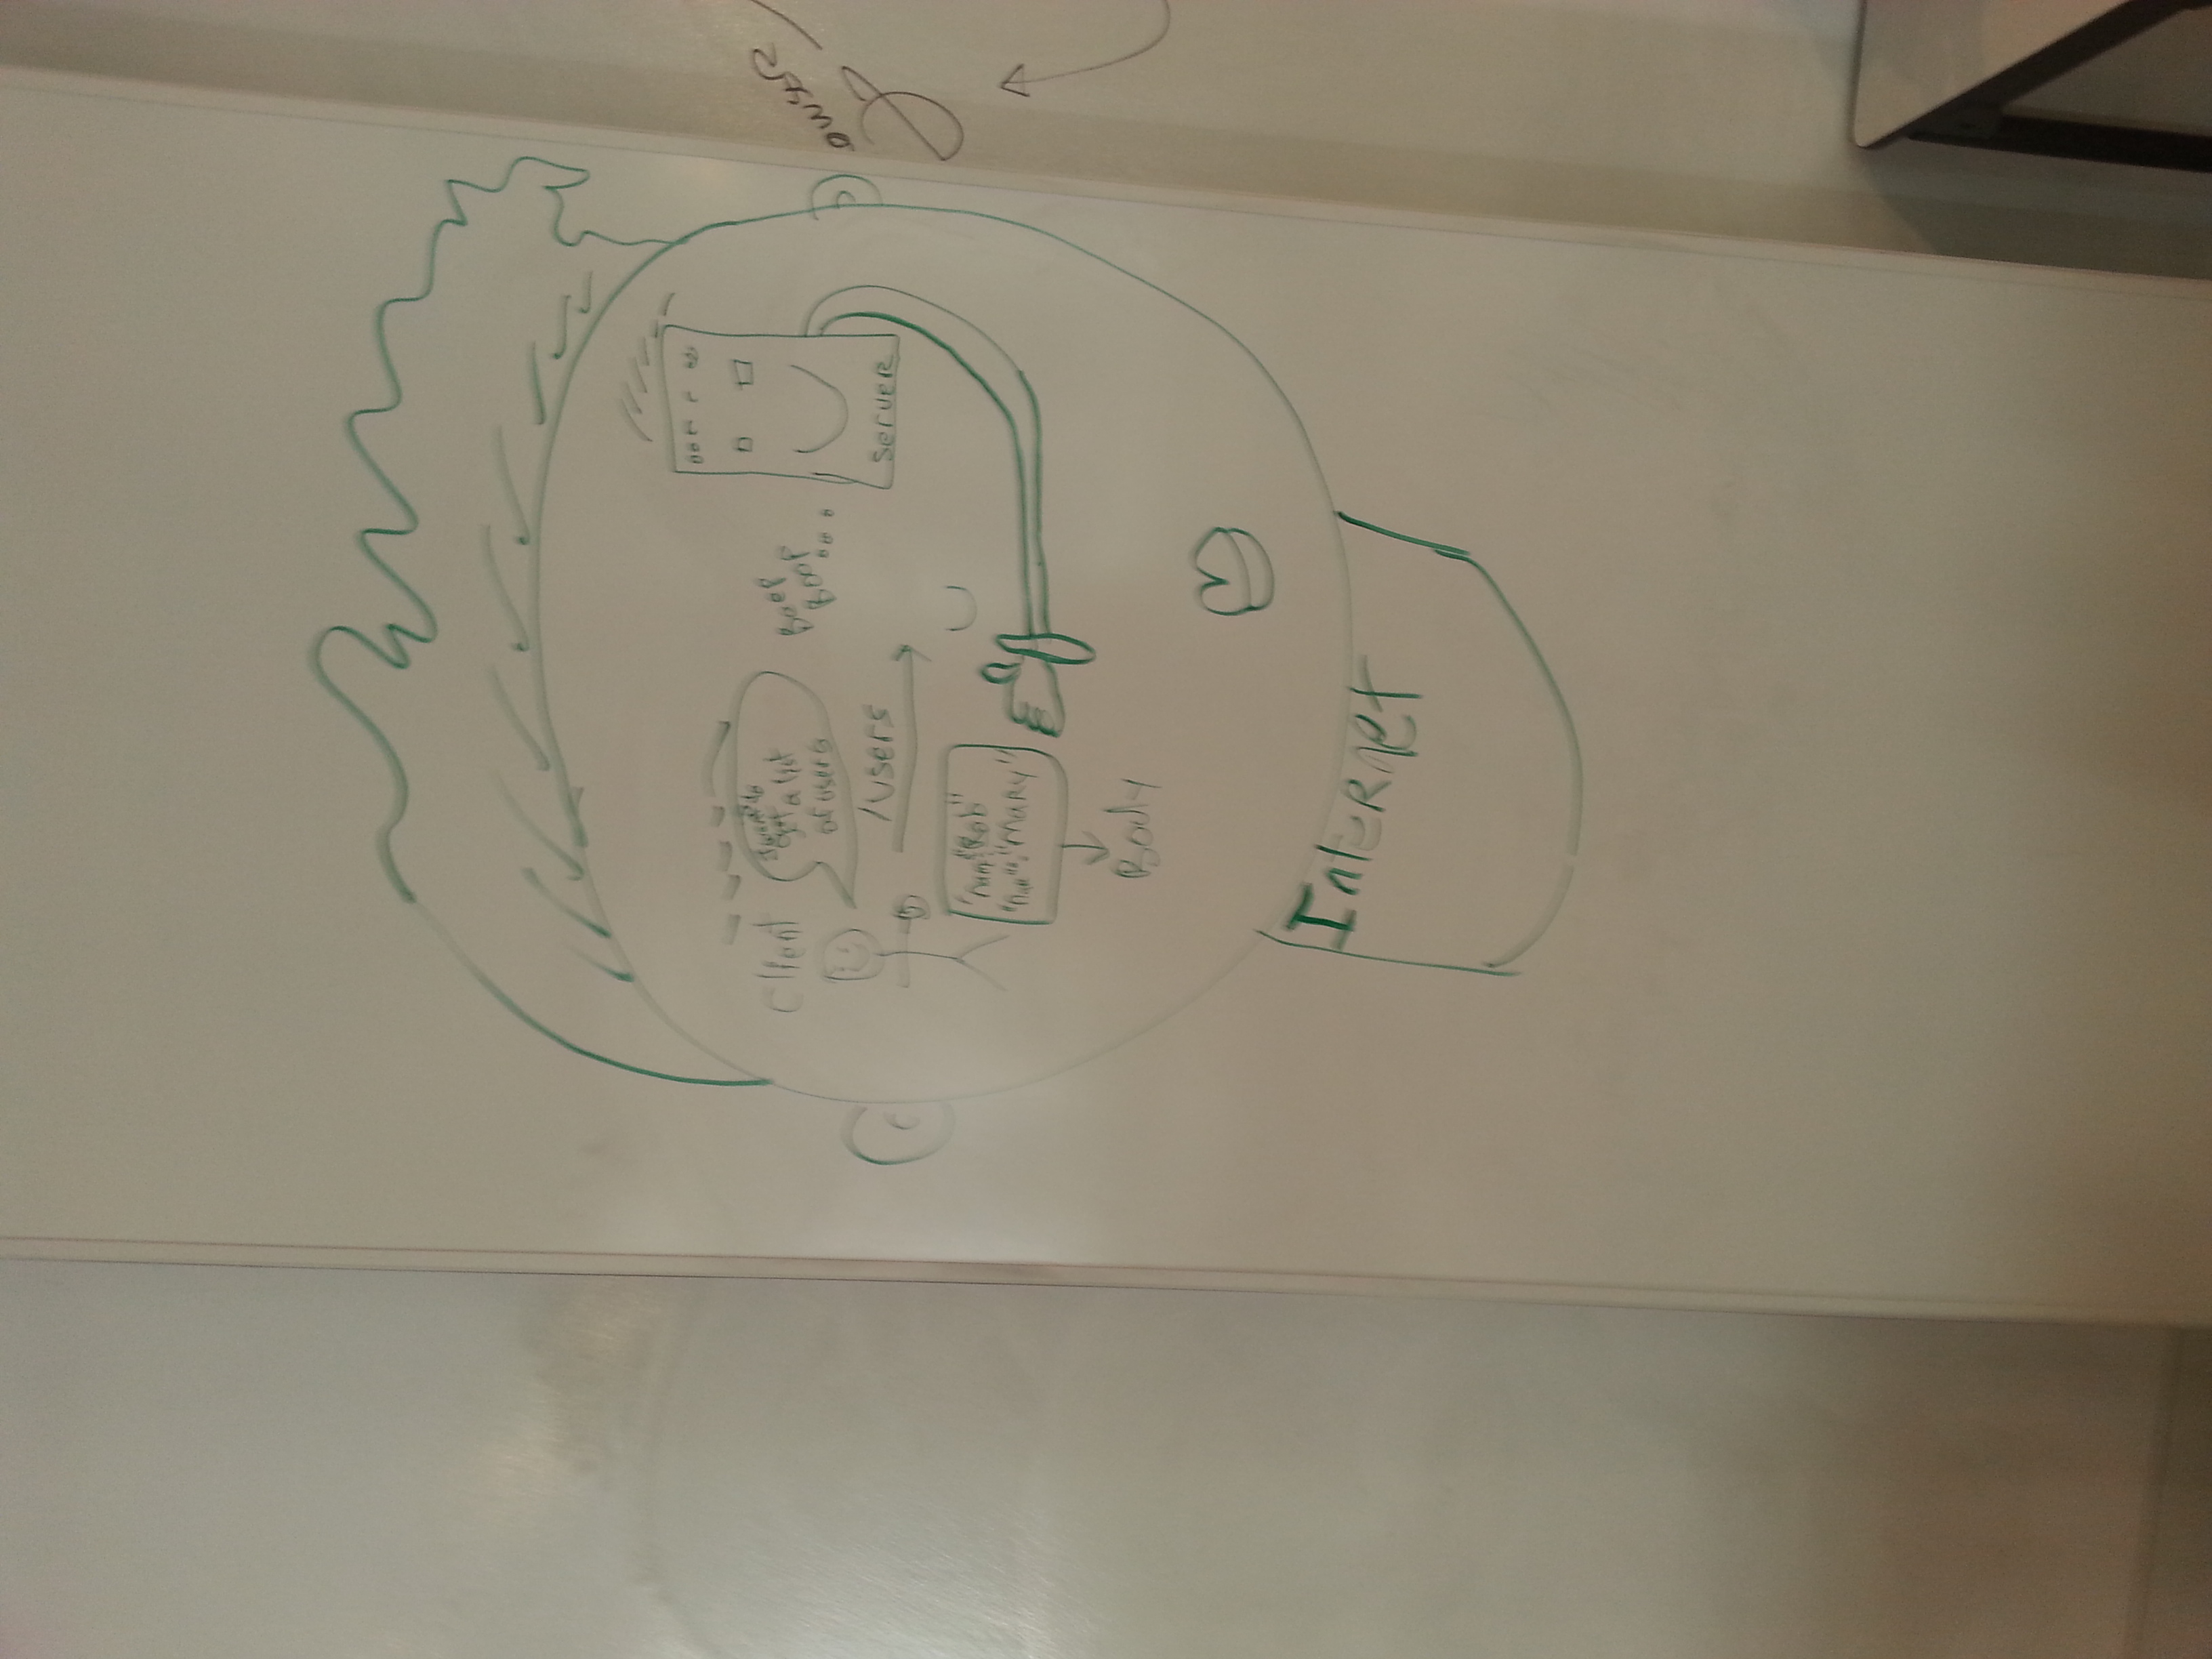 Client
I want to
get a list
of users
Beep
Boop...
server
/users
"name":"Rob"
"name":"Mary"
Body
Internet
owser